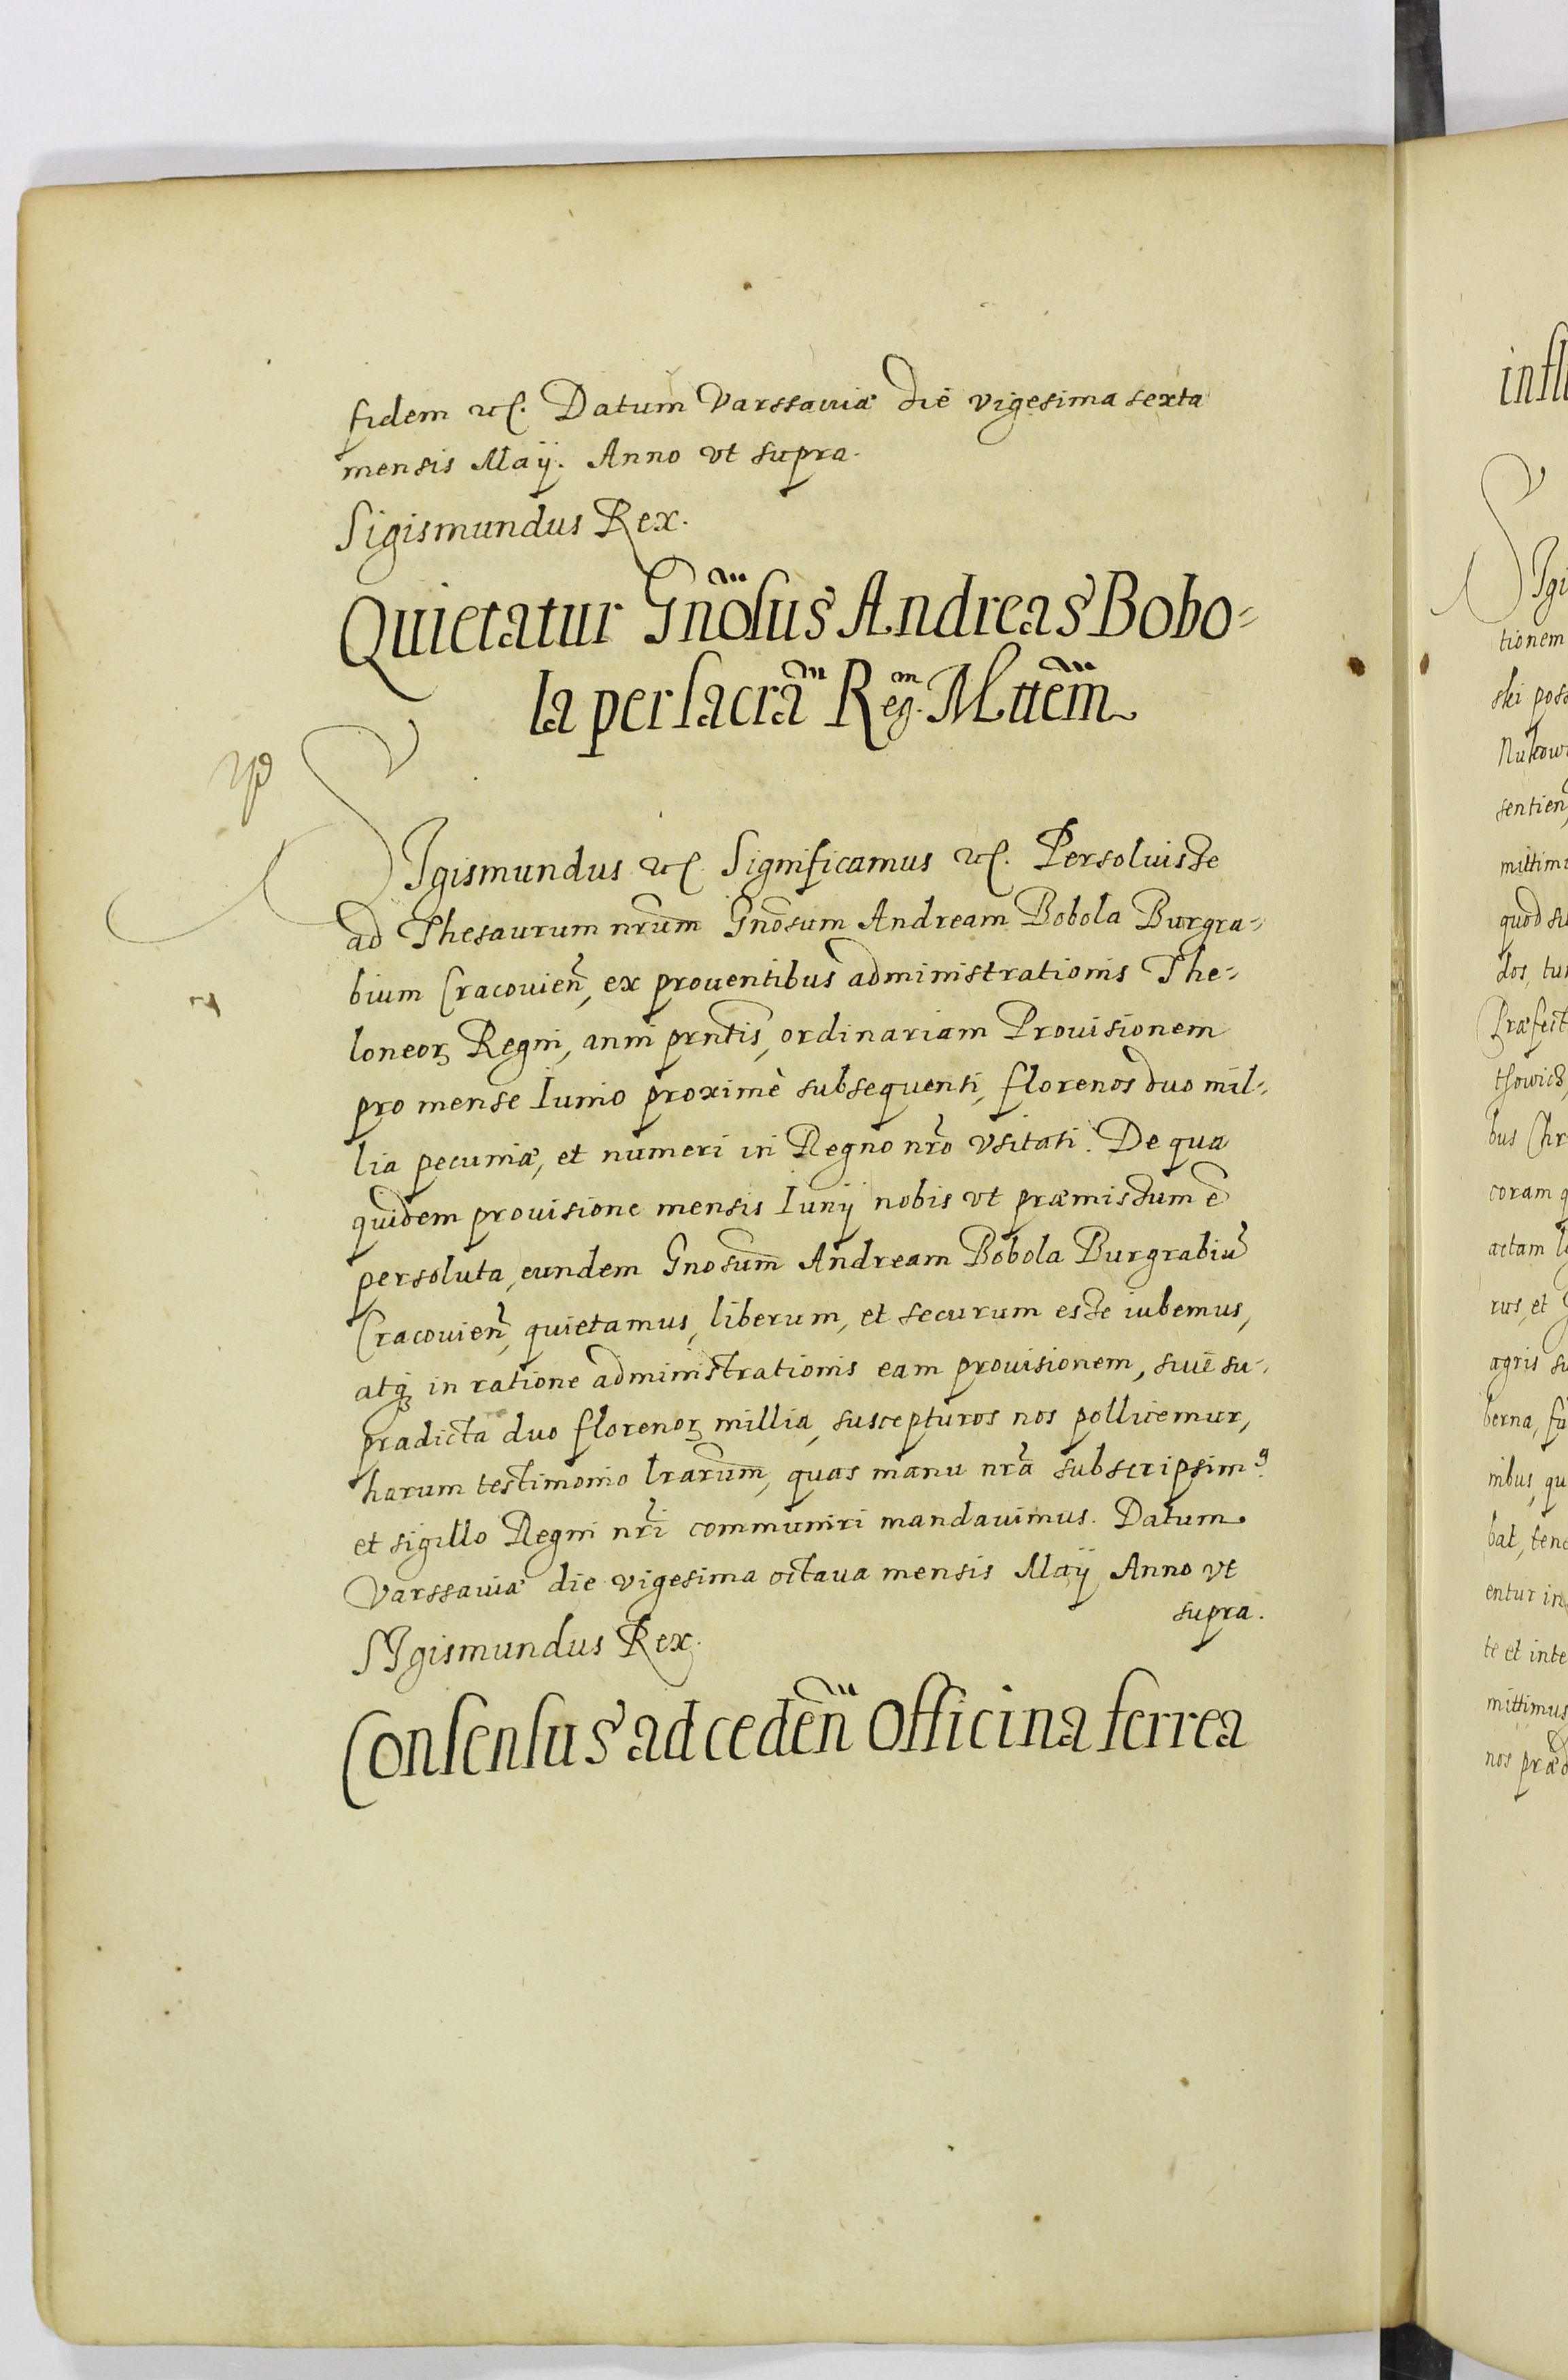 fidem etc. Datum Varssauiæ die vigesima sexta
mensis Maÿ. Anno vt supra.
Sigismundus Rex.
Quietatur Gnõsus Andreas Bobo=
la per sacrã Reg.m Mttem̃
SIgismundus etc. Significamus etc. Persoluisse
ad Thesaurum nrum̃ Gnõsum Andream Bobola Burgra=
bium Cracouieñ, ex prouentibus administrationis The=
loneorꝫ Regni, anni prñtis, ordinariam Prouisionem
pro mense Iunio proximè subsequenti, florenos duo mil=
lia pecuniæ, et numeri in Regno nrõ vsitati. De qua
quidem prouisione mensis Iunÿ nobis vt præmissum ẽ
persoluta, eundem Gnosum̃ Andream Bobola Burgrabiũ
Cracouieñ, quietamus, liberum, et securum esse iubemus,
atqꝫ in ratione administrationis eam prouisionem, siue su=
pradicta duo florenorꝫ millia, suscepturos nos pollicemur,
harum testimonio lrarum̃, quas manu nrã subscripsimꝰ
et sigillo Regni nrĩ communiri mandauimus. Datum
Varssauiæ die vigesima octaua mensis Maÿ Anno vt
supra.
SIgismundus Rex.
Consensus ad cedeñ Officina ferrea
infl
SIgi
tionem
ski poss
Nukow
sentien
mittimu
quod su
dos, tu
Præfect
bus Chr
coram q
actam l
rus, et
agris su
berna, fu
nibus, qu
bat, ten
entur in
te et inte
mittimus
nos præd